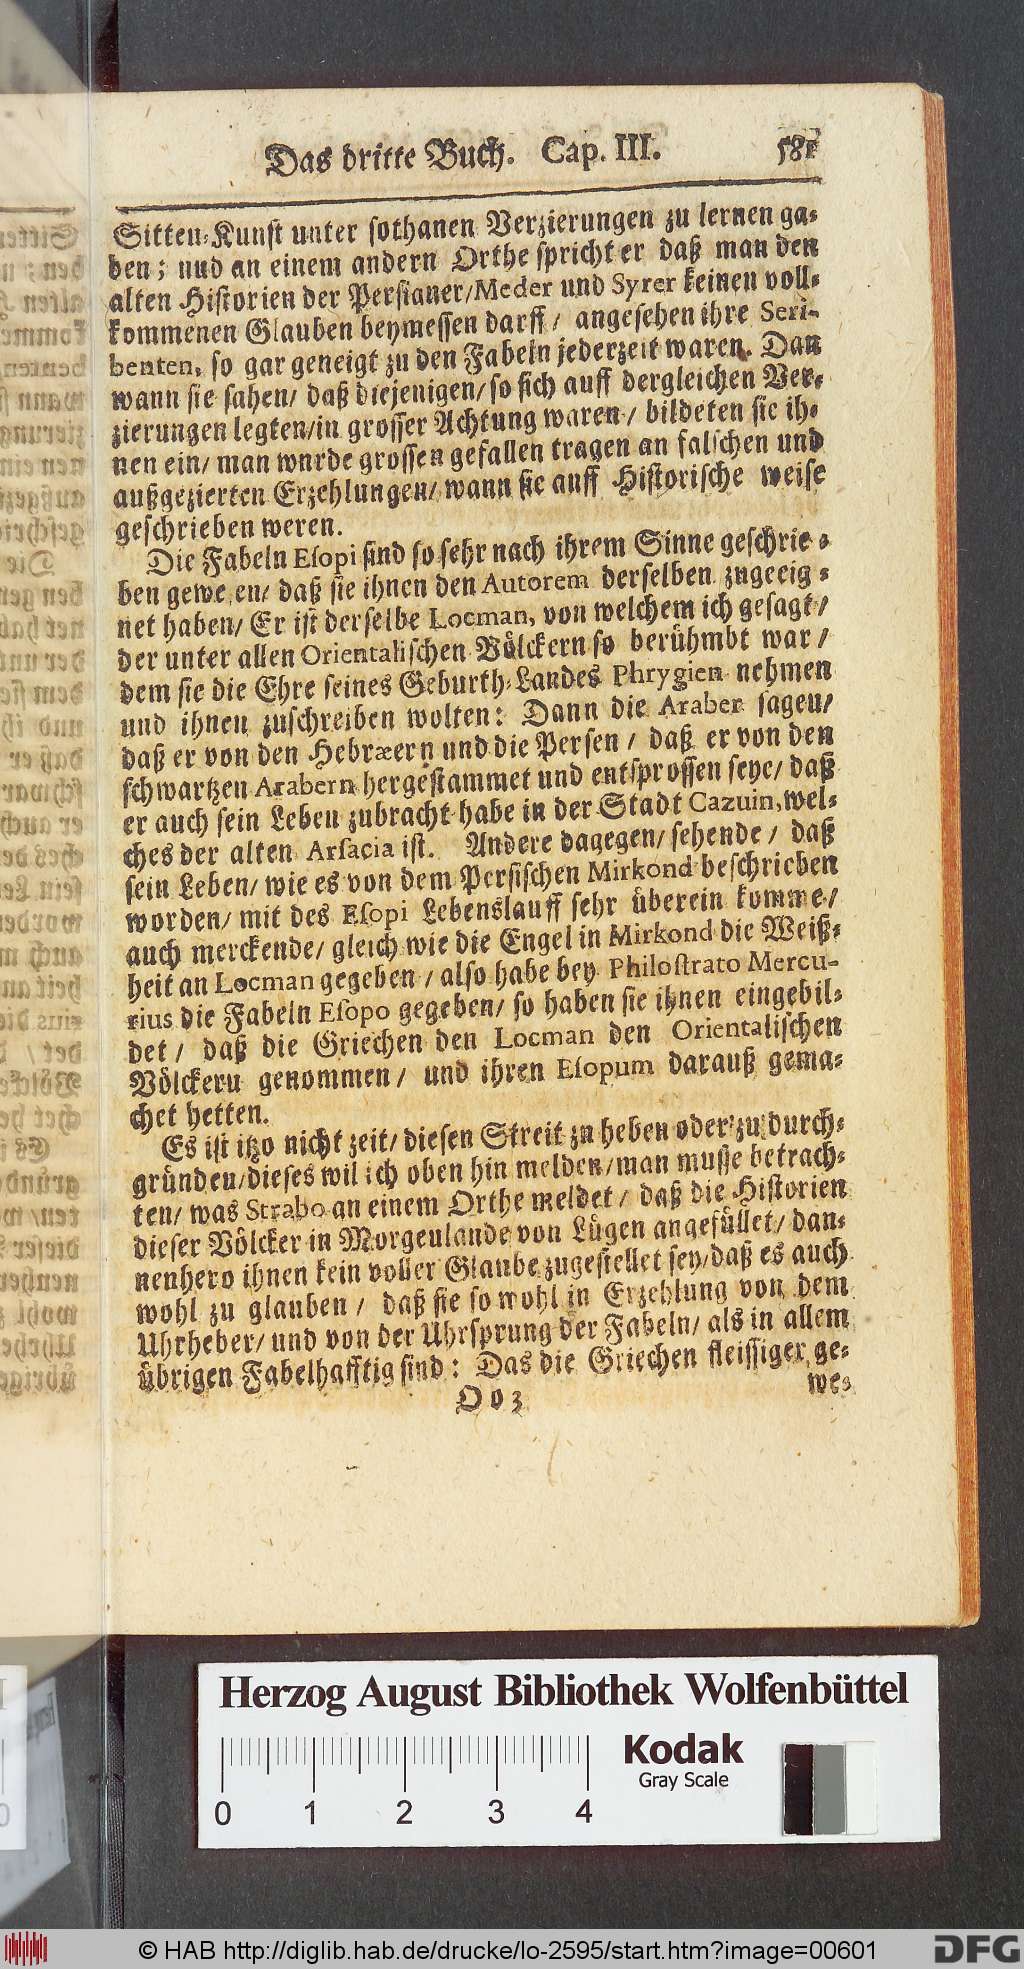 Das dritte Buch. Cap. III. 581
Sitten-Kunst unter sothanen Verzierungen zu lernen ga-
ben; nud an einem andern Orthe spricht er daß man den
alten Historien der Persianer/Meder und Syrer keinen voll-
kommenen Glauben beymessen darff/ angesehen ihre Seri-
benten, so gar geneigt zu den Fabeln jederzeit waren. Dan
wann sie sahen/ daß diejenigen/ so sich auff dergleichen Ver-
zierungen legten/in grosser Achtung waren/ bildeten sie ih-
nen ein/ man wurde grossen gefallen tragen an falschen und
außgezierten Erzehlungen/ wann sie auff Historische weise
geschrieben weren.
Die Fabeln Esopi sind so sehr nach ihrem Sinne geschrie-
ben gewesen/ daß sie ihnen den Autorem derselben zugeeig-
net haben/ Er ist derselbe Locman, von welchem ich gesagt/
der unter allen Orientalischen Völckern so berühmbt war/
dem sie die Ehre seines Geburth-Landes Phrygien nehmen
und ihnen zuschreiben wolten: Dann die Araber sagen/
daß er von den Hebræern und die Persen/ daß er von den
schwartzen Arabern hergestammet und entsprossen seye/ daß
er auch sein Leben zubracht habe in der Stadt Cazuin, wel-
ches der alten Arsacia ist. Andere dagegen/ sehende/ daß
sein Leben/ wie es von dem Persischen Mirkond beschrieben
worden/ mit des Esopi Lebenslauff sehr überein komme/
auch merckende/ gleich wie die Engel in Mirkond die Weiß-
heit an Locman gegeben/ also habe bey Philostrato Mercu-
rius die Fabeln Esopo gegeben/ so haben sie ihnen eingebil-
det/ daß die Griechen den Locman den Orientalischen
Völckern genommen/ und ihren Esopum darauß gema-
chet hetten.
Es ist itzo nicht zeit/ diesen Streit zu heben oder zu durch-
gründen/dieses wil ich oben hin melden/man musse betrach-
ten/ was Strabo an einem Orthe meldet/ daß die Historien
dieser Völcker in Morgenlande von Lügen angefüllet/ dan-
nenhero ihnen kein voller Glaube zugestellet sey/daß es auch
wohl zu glauben/ daß sie so wohl in Erzehlung von dem
Uhrheber/ und von der Uhrsprung der Fabeln/ als in allem
übrigen Fabelhafftig sind: Das die Griechen fleissiger ge-
Oo3 we-
Herzog August Bibliothek Wolfenbüttel
0 1 2 3 4
Kodak
Gray Scale
© HAB http://diglib.hab.de/drucke/lo-2595/start.htm?image=00601
DFG